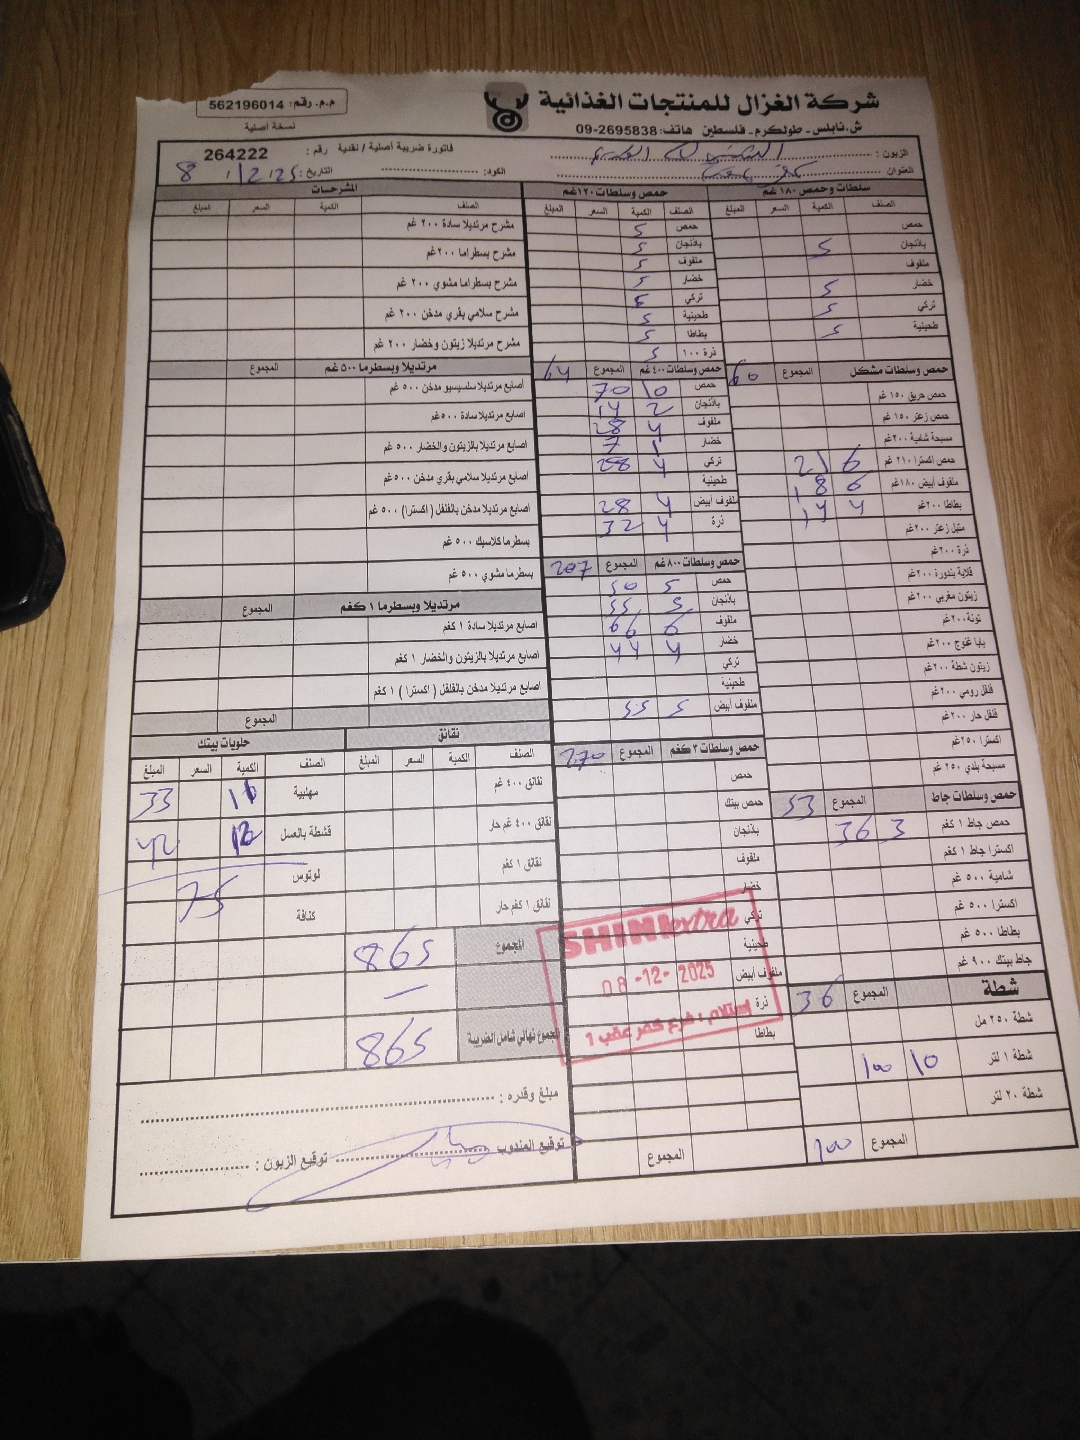 شركة الغزال للمنتجات الغذائية
ش.نابلس - طولكرم - فلسطين هاتف: 09-2695838
م.م. رقم: 562196014
نسخة أصلية
الزبون :
فاتورة ضريبية أصلية / نقدية رقم : 264222
العنوان
الكود:
التاريخ: 8 / 12 / 25
سلطات وحمص ١٨٠ غم
الصنف الكمية السعر المبلغ
حمص
باذنجان 5
ملفوف
خضار 5
تركي 5
طحينية 5
حمص وسلطات مشكل المجموع 60
حمص حريق ١٥٠ غم
حمص زعتر ١٥٠ غم
مسبحة شامية ٢٠٠غم
حمص اكسترا ٢١٠ غم 6 21
ملفوف أبيض ١٨٠غم 6 18
بطاطا ٢٠٠غم 4 14
متبل زعتر ٢٠٠غم
ذرة ٢٠٠غم
قلاية بندورة ٢٠٠غم
زيتون مغربي ٢٠٠غم
تونة ٢٠٠غم
بابا غنوج ٢٠٠غم
زيتون شطة ٢٠٠غم
فلفل رومي ٢٠٠غم
فلفل حار ٢٠٠غم
اكسترا ٢٥٠غم
مسبحة بلدي ٢٥٠ غم
حمص وسلطات جاط المجموع 53
حمص جاط ١ كغم 3 36
اكسترا جاط ١ كغم
شامية ٥٠٠ غم
اكسترا ٥٠٠ غم
بطاطا ٥٠٠ غم
جاط بيتك ٩٠٠ غم
شطة المجموع 36
شطة ٢٥٠ مل
شطة ١ لتر 10 100
شطة ٢٠ لتر
المجموع 100
حمص وسلطات ١٢٠غم
الصنف الكمية السعر المبلغ
حمص 5
باذنجان 5
ملفوف 5
خضار 5
تركي 5
طحينية 5
بطاطا 5
ذرة ١٠٠ 5
حمص وسلطات ٤٠٠ غم المجموع 64
حمص 10 70
باذنجان 2 14
ملفوف 4 28
خضار 1 7
تركي 4 28
طحينية
ملفوف أبيض 4 28
ذرة 4 32
حمص وسلطات ٨٠٠ غم المجموع 207
حمص 5 50
باذنجان 5 55
ملفوف 6 66
خضار 4 44
تركي
طحينية
ملفوف أبيض 5 55
حمص وسلطات ٣ كغم المجموع 270
حمص
حمص بيتك
باذنجان
ملفوف
خضار
تركي
طحينية
ملفوف أبيض
ذرة
بطاطا
المجموع
SHINI extra
08-12-2025
استلام : فرع كفر عقب 1
المشرحات
الصنف الكمية السعر المبلغ
مشرح مرتديلا سادة ٢٠٠ غم
مشرح بسطراما ٢٠٠غم
مشرح بسطراما مشوي ٢٠٠ غم
مشرح سلامي بقري مدخن ٢٠٠ غم
مشرح مرتديلا زيتون وخضار ٢٠٠ غم
مرتديلا وبسطرما ٥٠٠ غم المجموع
أصابع مرتديلا سلسيسيو مدخن ٥٠٠ غم
اصابع مرتديلا سادة ٥٠٠غم
اصابع مرتديلا بالزيتون والخضار ٥٠٠ غم
اصابع مرتديلا سلامي بقري مدخن ٥٠٠غم
اصابع مرتديلا مدخن بالفلفل ( اكسترا ) ٥٠٠ غم
بسطرما كلاسيك ٥٠٠ غم
بسطرما مشوي ٥٠٠ غم
مرتديلا وبسطرما ١ كغم المجموع
اصابع مرتديلا سادة ١ كغم
اصابع مرتديلا بالزيتون والخضار ١ كغم
اصابع مرتديلا مدخن بالفلفل ( اكسترا ) ١ كغم
المجموع
نقانق
الصنف الكمية السعر المبلغ
نقانق ٤٠٠ غم
نقانق ٤٠٠ غم حار
نقانق ١ كغم
نقانق ١ كغم حار
حلويات بيتك
الصنف الكمية السعر المبلغ
مهلبية 11 33
قشطة بالعسل 12 42
لوتوس 75
كنافة
المجموع 865
المجموع نهائي شامل الضريبة 865
مبلغ وقدره :
توقيع المندوب
توقيع الزبون :